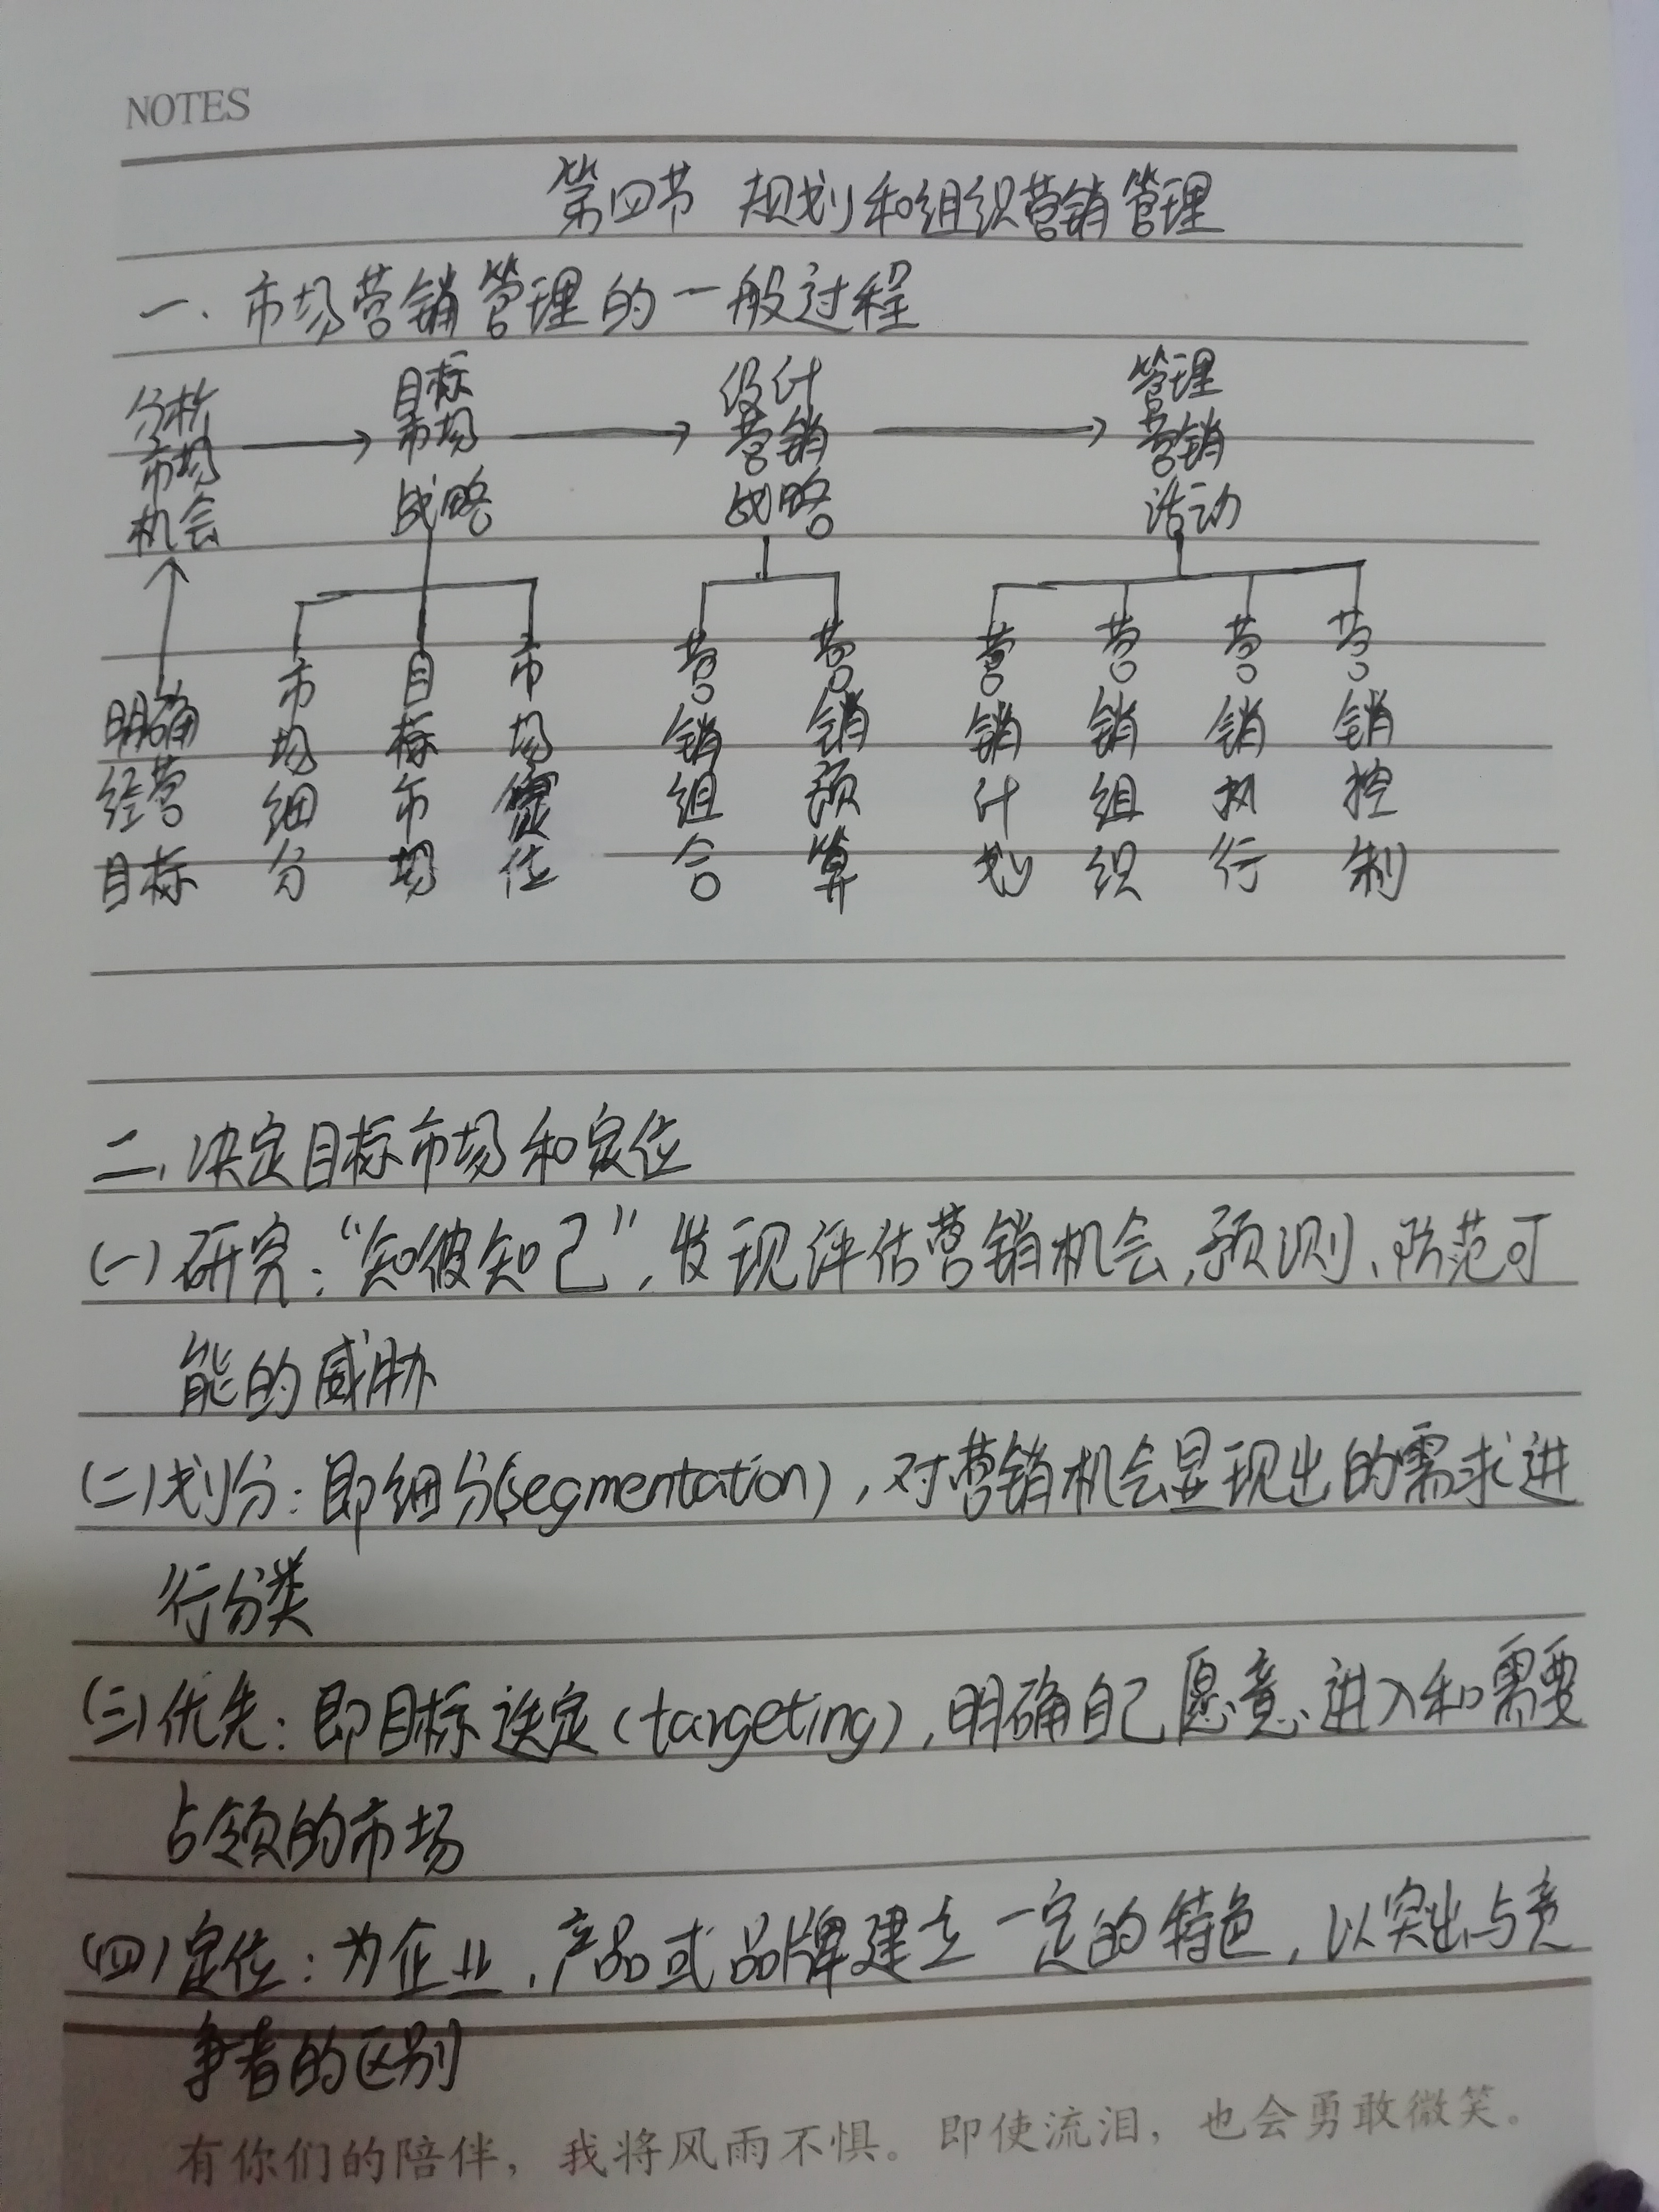 NOTES
第四节 规划和组织营销管理
一、市场营销管理的一般过程
分析
市场
机会
目标
市场
战略
设计
营销
战略
管理
营销
活动
明确
经营
目标
市场细分
目标市场
市场定位
营销组合
营销预算
营销计划
营销组织
营销执行
营销控制
二、决定目标市场和定位
(一)研究:“知彼知己”,发现评估营销机会,预测、防范可
能的威胁
(二)划分:即细分(segmentation),对营销机会显现出的需求进
行分类
(三)优先:即目标选定(targeting),明确自己愿意进入和需要
占领的市场
(四)定位:为企业、产品或品牌建立一定的特色,以突出与竞
争者的区别
有你们的陪伴，我将风雨不惧。即使流泪，也会勇敢微笑。